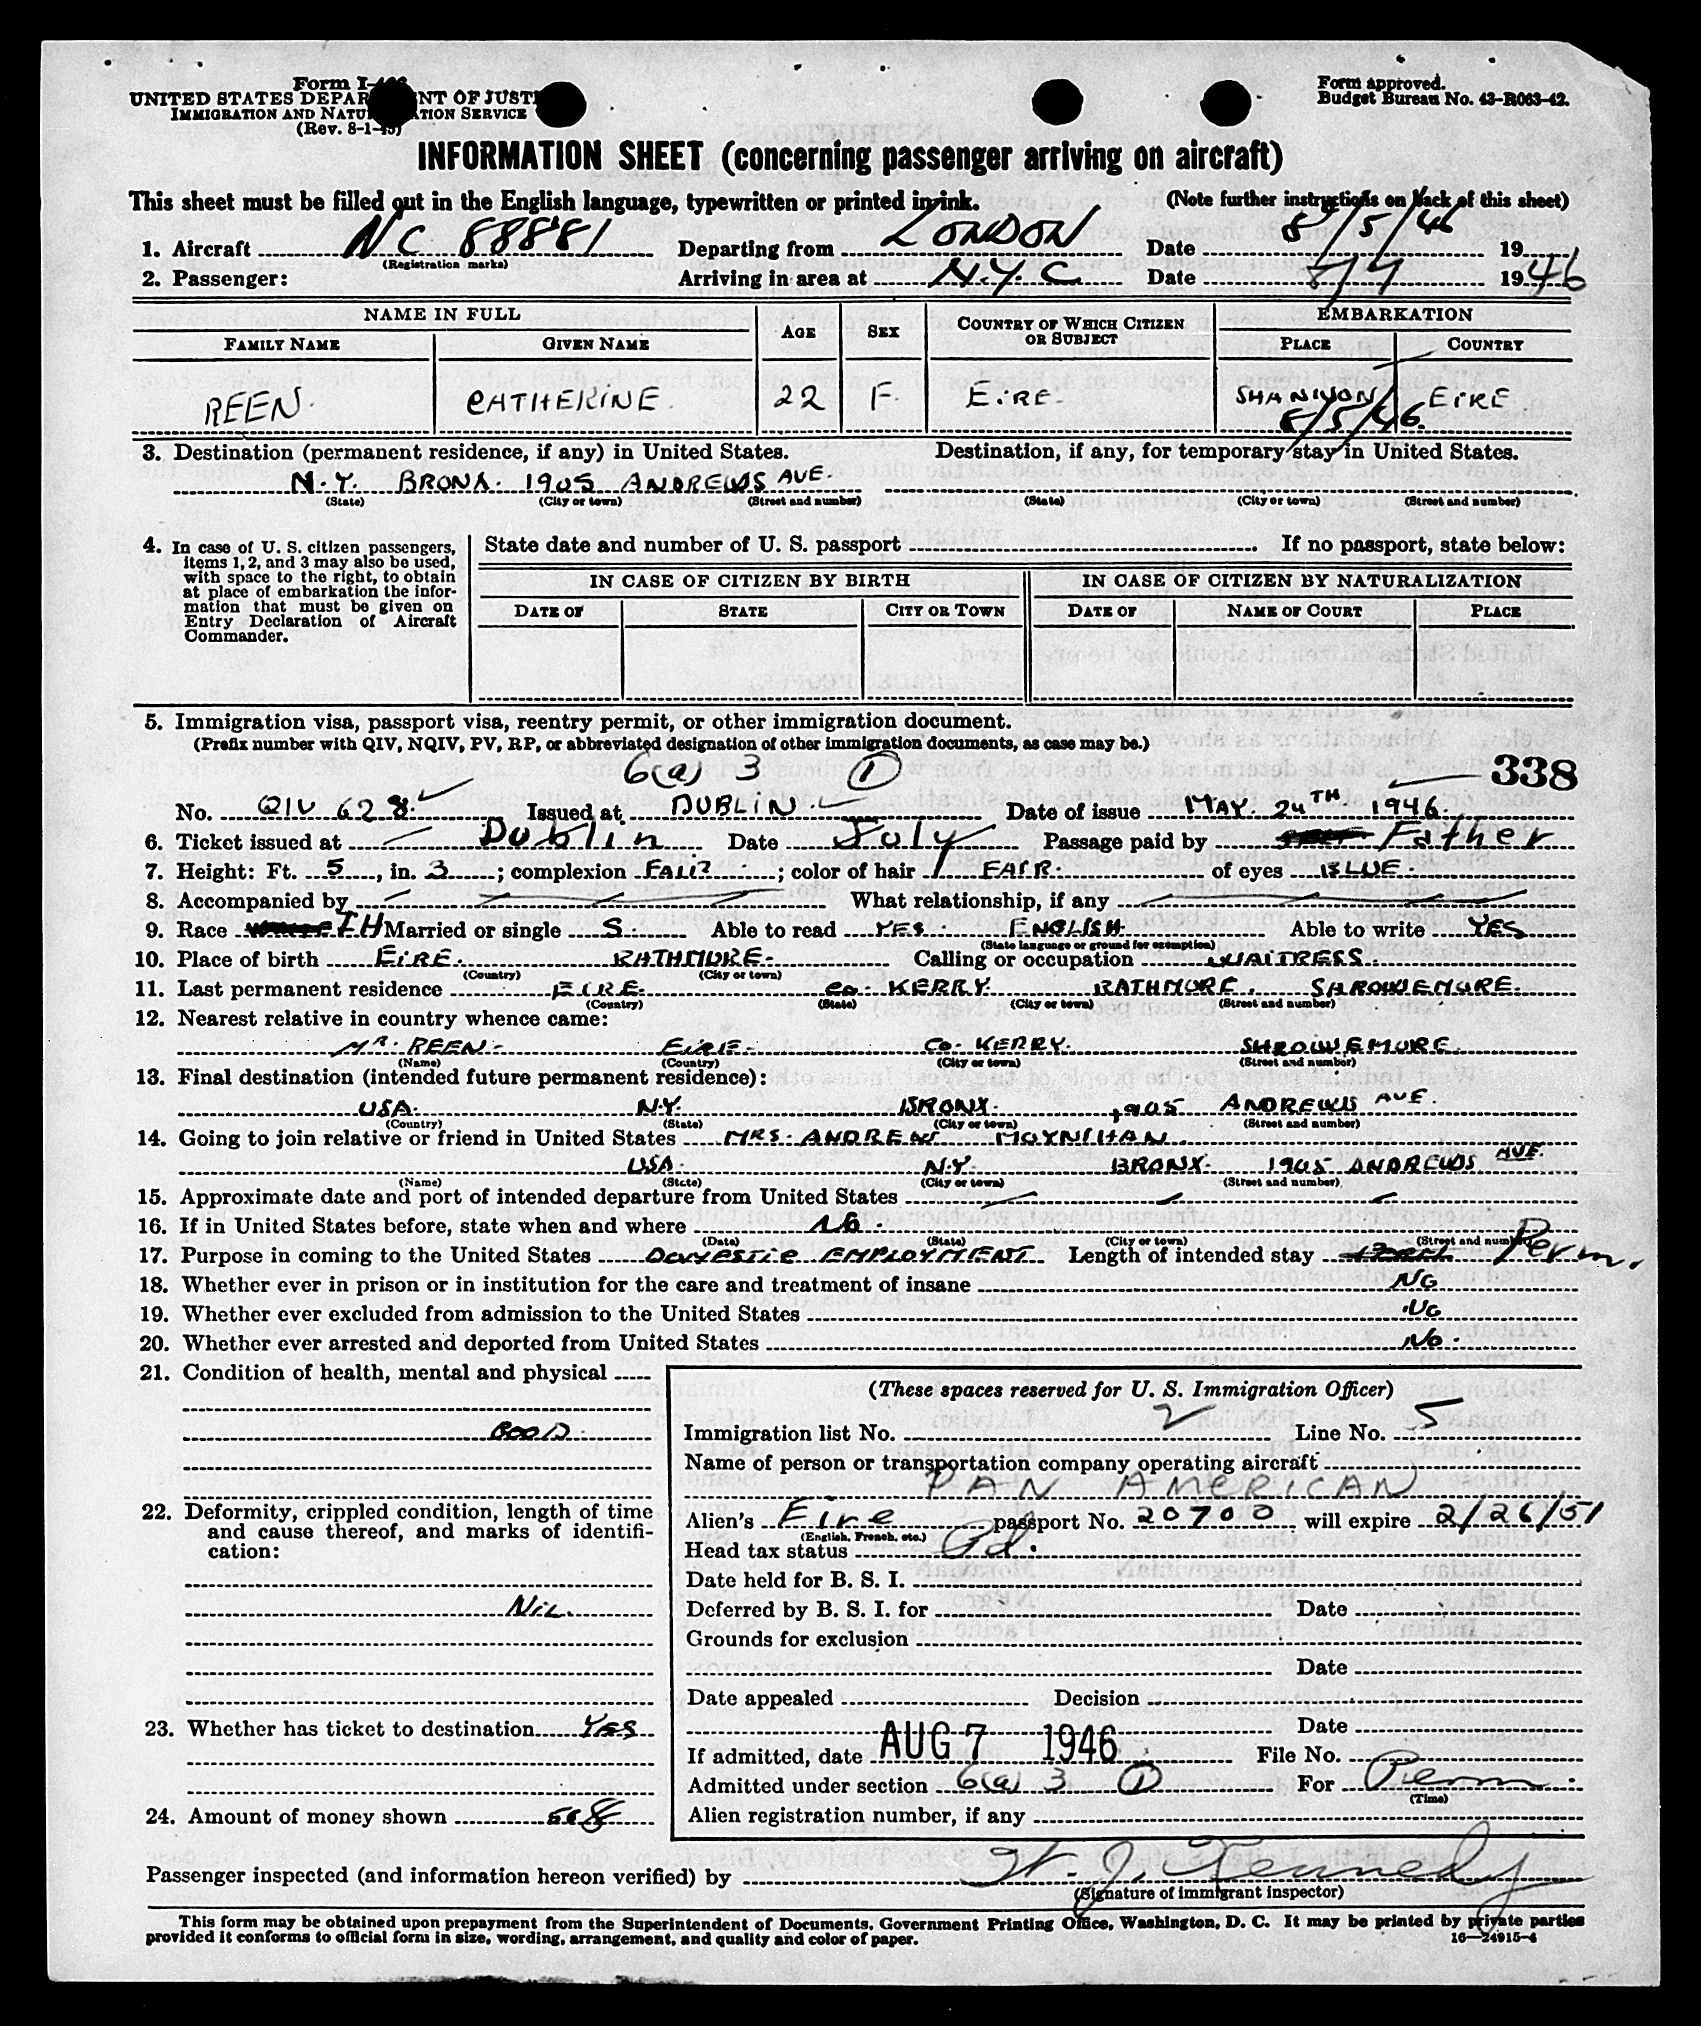 Form I-
UNITED STATES DEPAR NT OF JUST
IMMIGRATION AND NATU TION SERVICE
(Rev. 8-1-45)
Form approved.
Budget Bureau No. 43-R063-42.
INFORMATION SHEET (concerning passenger arriving on aircraft)
This sheet must be filled out in the English language, typewritten or printed in ink. (Note further instructions on back of this sheet)
1. Aircraft NC 88881 Departing from LONDON Date 8/5/46 19
(Registration marks)
2. Passenger: Arriving in area at N.Y.C Date 8/7 1946
NAME IN FULL AGE SEX COUNTRY OF WHICH CITIZEN OR SUBJECT EMBARKATION
FAMILY NAME GIVEN NAME PLACE COUNTRY
REEN. CATHERINE. 22 F. EIRE. SHANNON EIRE.
8/5/46
3. Destination (permanent residence, if any) in United States. Destination, if any, for temporary stay in United States.
N.Y. BRONX. 1905 ANDREWS AVE.
(State) (City or town) (Street and number) (State) (City or town) (Street and number)
4. In case of U. S. citizen passengers, items 1, 2, and 3 may also be used, with space to the right, to obtain at place of embarkation the infor-mation that must be given on Entry Declaration of Aircraft Commander.
State date and number of U. S. passport . If no passport, state below:
IN CASE OF CITIZEN BY BIRTH IN CASE OF CITIZEN BY NATURALIZATION
DATE OF STATE CITY OR TOWN DATE OF NAME OF COURT PLACE
5. Immigration visa, passport visa, reentry permit, or other immigration document.
(Prefix number with QIV, NQIV, PV, RP, or abbreviated designation of other immigration documents, as case may be.)
6(a) 3 1 338
No. QIV 628. Issued at DUBLIN. Date of issue MAY. 24TH 1946.
6. Ticket issued at Dublin Date July Passage paid by Father
7. Height: Ft. 5, in. 3; complexion FAIR; color of hair FAIR. of eyes BLUE.
8. Accompanied by What relationship, if any
9. Race IH Married or single S. Able to read YES. ENGLISH. Able to write YES
(State language or ground for exemption)
10. Place of birth EIRE. RATHMORE. Calling or occupation WAITRESS.
(Country) (City or town)
11. Last permanent residence EIRE. Co. KERRY. RATHMORE. SHROWEMORE.
(Country) (State) (City or town) (Street and number)
12. Nearest relative in country whence came:
MR. REEN. EIRE. Co. KERRY. SHROWEMORE.
(Name) (Country) (City or town) (Street and number)
13. Final destination (intended future permanent residence):
USA. N.Y. BRONX. 1905 ANDREWS AVE.
(Country) (State) (City or town) (Street and number)
14. Going to join relative or friend in United States MRS. ANDREW MOYNIHAN.
USA. N.Y. BRONX. 1905 ANDREWS AVE.
(Name) (State) (City or town) (Street and number)
15. Approximate date and port of intended departure from United States
16. If in United States before, state when and where NO.
(Date) (State) (City or town) (Street and number)
17. Purpose in coming to the United States DOMESTIC EMPLOYMENT. Length of intended stay Perm.
18. Whether ever in prison or in institution for the care and treatment of insane NO
19. Whether ever excluded from admission to the United States NO
20. Whether ever arrested and deported from United States No.
21. Condition of health, mental and physical
GOOD.
22. Deformity, crippled condition, length of time and cause thereof, and marks of identifi-cation:
NIL.
23. Whether has ticket to destination YES
24. Amount of money shown
(These spaces reserved for U. S. Immigration Officer)
Immigration list No. 2 Line No. 5
Name of person or transportation company operating aircraft
PAN AMERICAN
Alien's Eire passport No. 20700. will expire 2/26/51
(English, French, etc.)
Head tax status Pd.
Date held for B. S. I.
Deferred by B. S. I. for Date
Grounds for exclusion
Date
Date appealed Decision
Date
If admitted, date AUG 7 1946 File No.
Admitted under section 6(a) 3 1 For Perm.
(Time)
Alien registration number, if any
Passenger inspected (and information hereon verified) by W. J. Kennedy
(Signature of immigrant inspector)
This form may be obtained upon prepayment from the Superintendent of Documents, Government Printing Office, Washington, D. C. It may be printed by private parties
provided it conforms to official form in size, wording, arrangement, and quality and color of paper. 16—24915-4